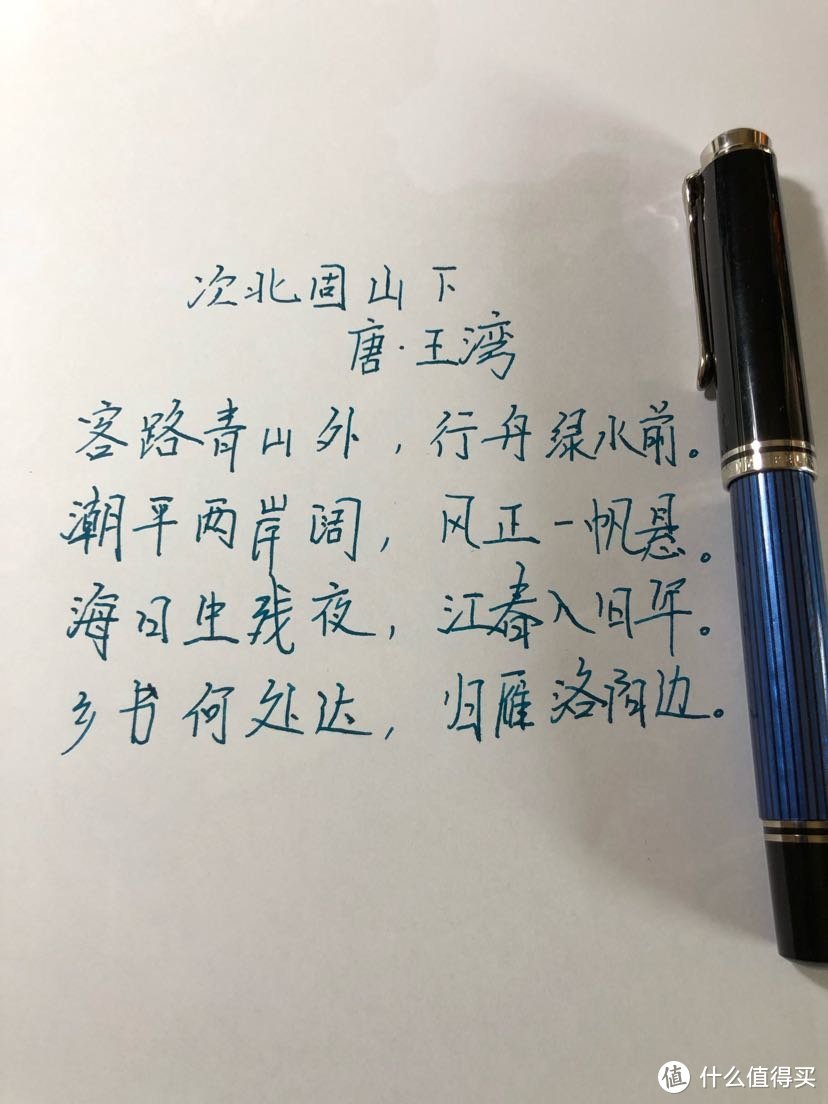 次北固山下
唐·王湾
客路青山外，行舟绿水前。
潮平两岸阔，风正一帆悬。
海日生残夜，江春入旧年。
乡书何处达，归雁洛阳边。
值 什么值得买